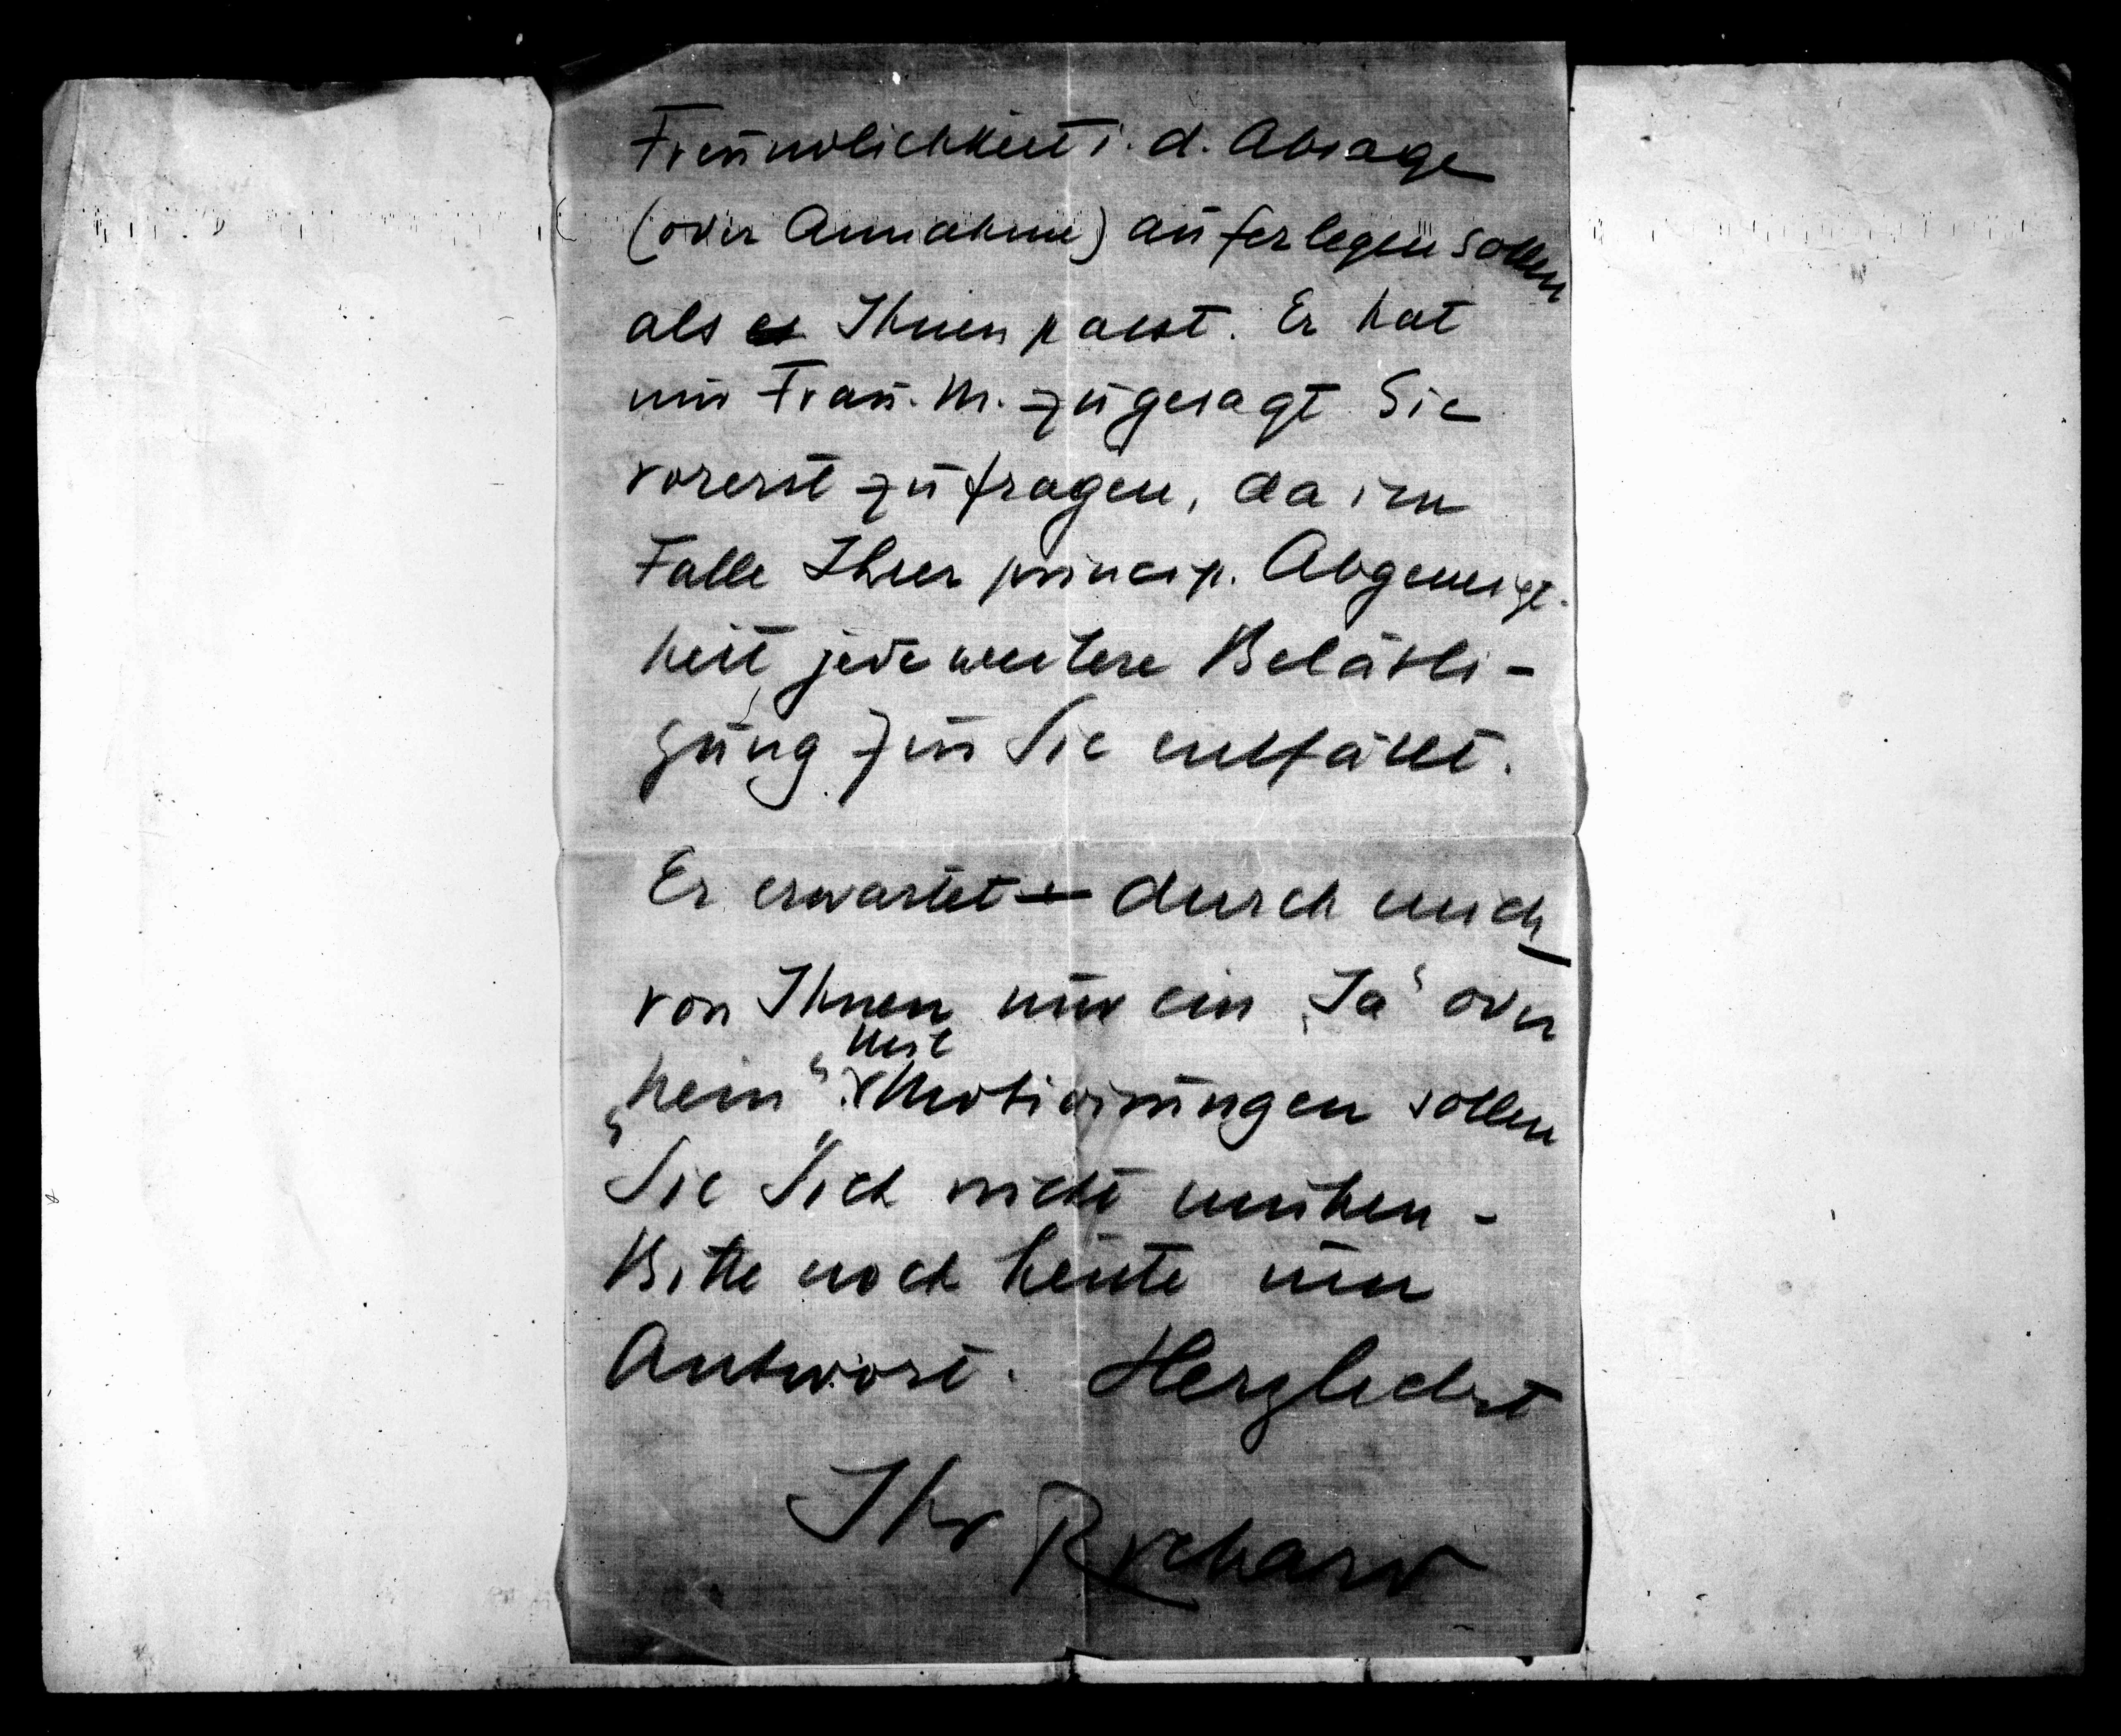 Freundlichkeit i. d. Absage
(oder Annahme) auferlegen sollen
als es Ihnen passt. Er hat
nur Frau. M. zugesagt Sie
vorerst zu fragen, da im
Falle Ihrer princip. Abgeneigt-
heit jede weitere Belästi-
gung für Sie entfällt.
Er erwartet – durch mich
von Ihnen nur ein „Ja“ oder
„nein“. Mit Motivirungen sollen
Sie Sich nicht mühen –
Bitte noch heute um
Antwort. Herzlichst
Ihr Richard